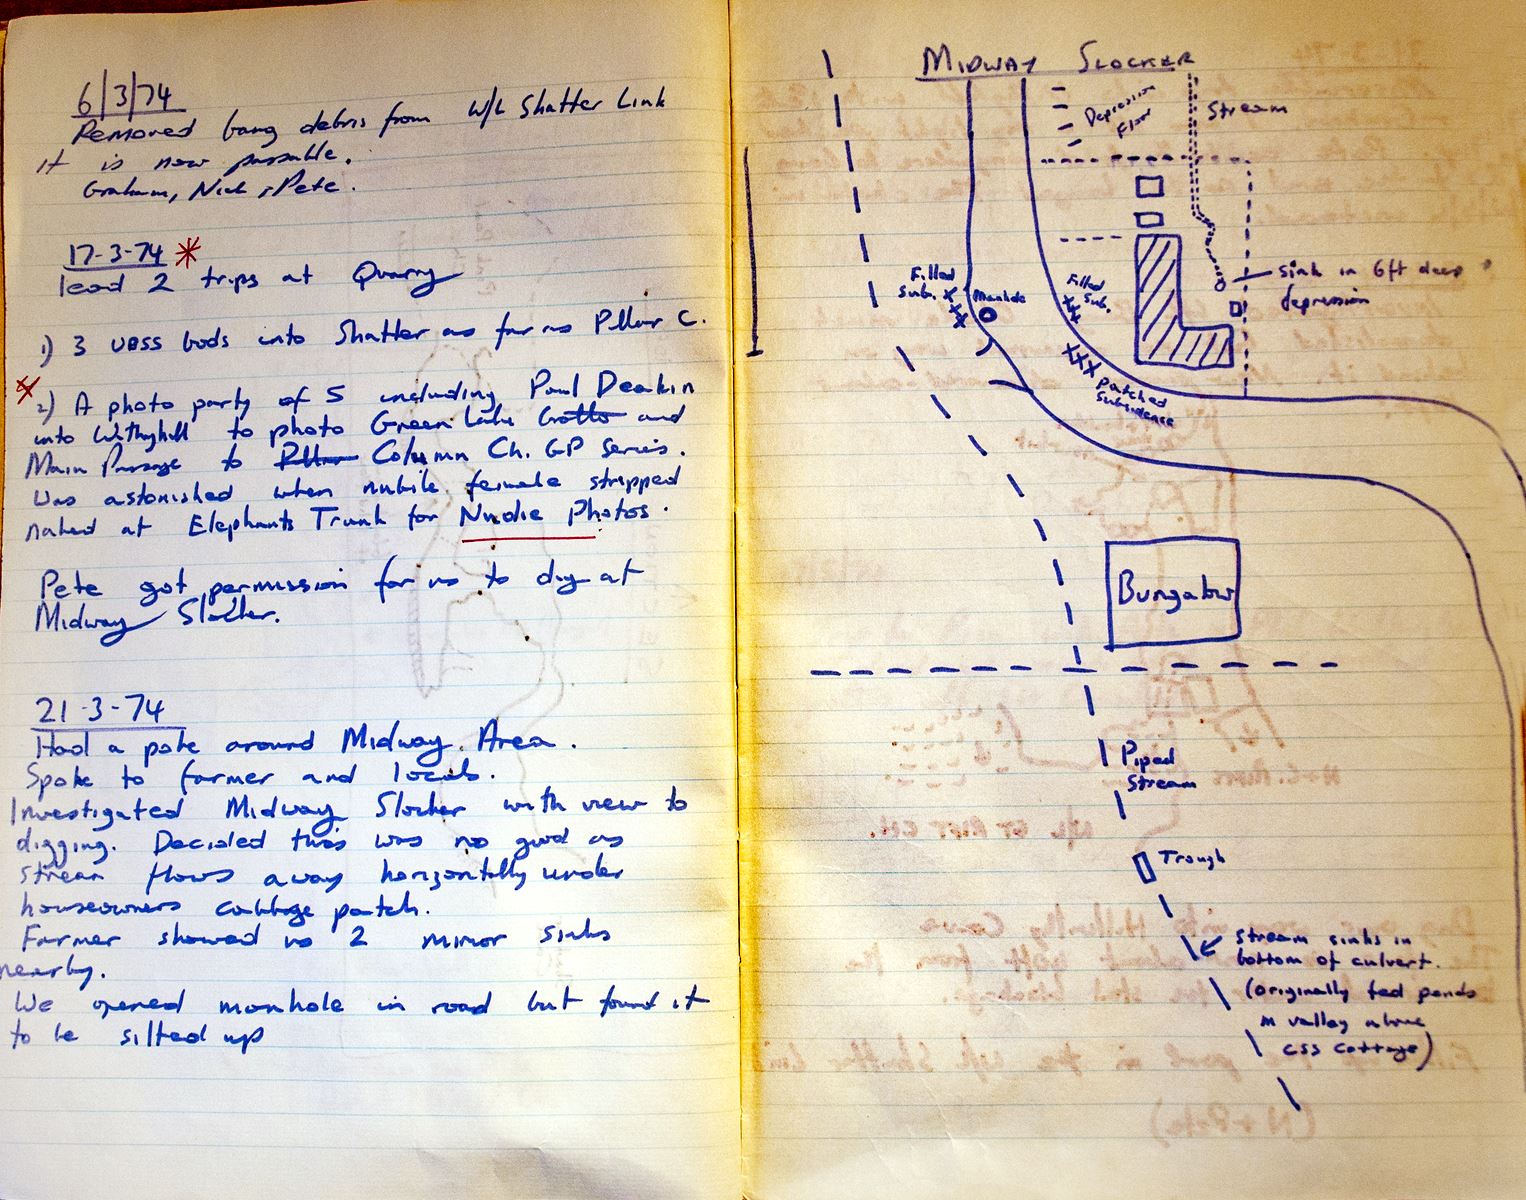 6/3/74
Removed bang debris from W/L Shatter Link
it is now passable.
Graham, Nick, Pete.
17-3-74 *
lead 2 trips at Quarry
1) 3 UBSS bods into Shatter as far as Pillar C.
* 2) A photo party of 5 including Paul Deakin
into Withyhill to photo Green Lake Grotto and
Main Passage to Pillar Column Ch. GP Series.
Was astonished when nubile female stripped
naked at Elephants Trunk for Nudie Photos.
Pete got permission for us to dig at
Midway Slocker.
21-3-74
Had a poke around Midway Area.
Spoke to farmer and locals.
Investigated Midway Slocker with view to
digging. Decided this was no good as
stream flows away horizontally under
houseowners cabbage patch.
Farmer showed us 2 minor sinks
nearby.
We opened manhole in road but found it
to be silted up
MIDWAY SLOCKER
Depression
Floor
Stream
sink in 6ft deep
depression
Filled
sub.
Manhole
Filled
Sub.
patched
subsidence
Bungalow
Piped
Stream
Trough
stream sinks in
bottom of culvert.
(originally fed ponds
in valley above
CSS cottage)